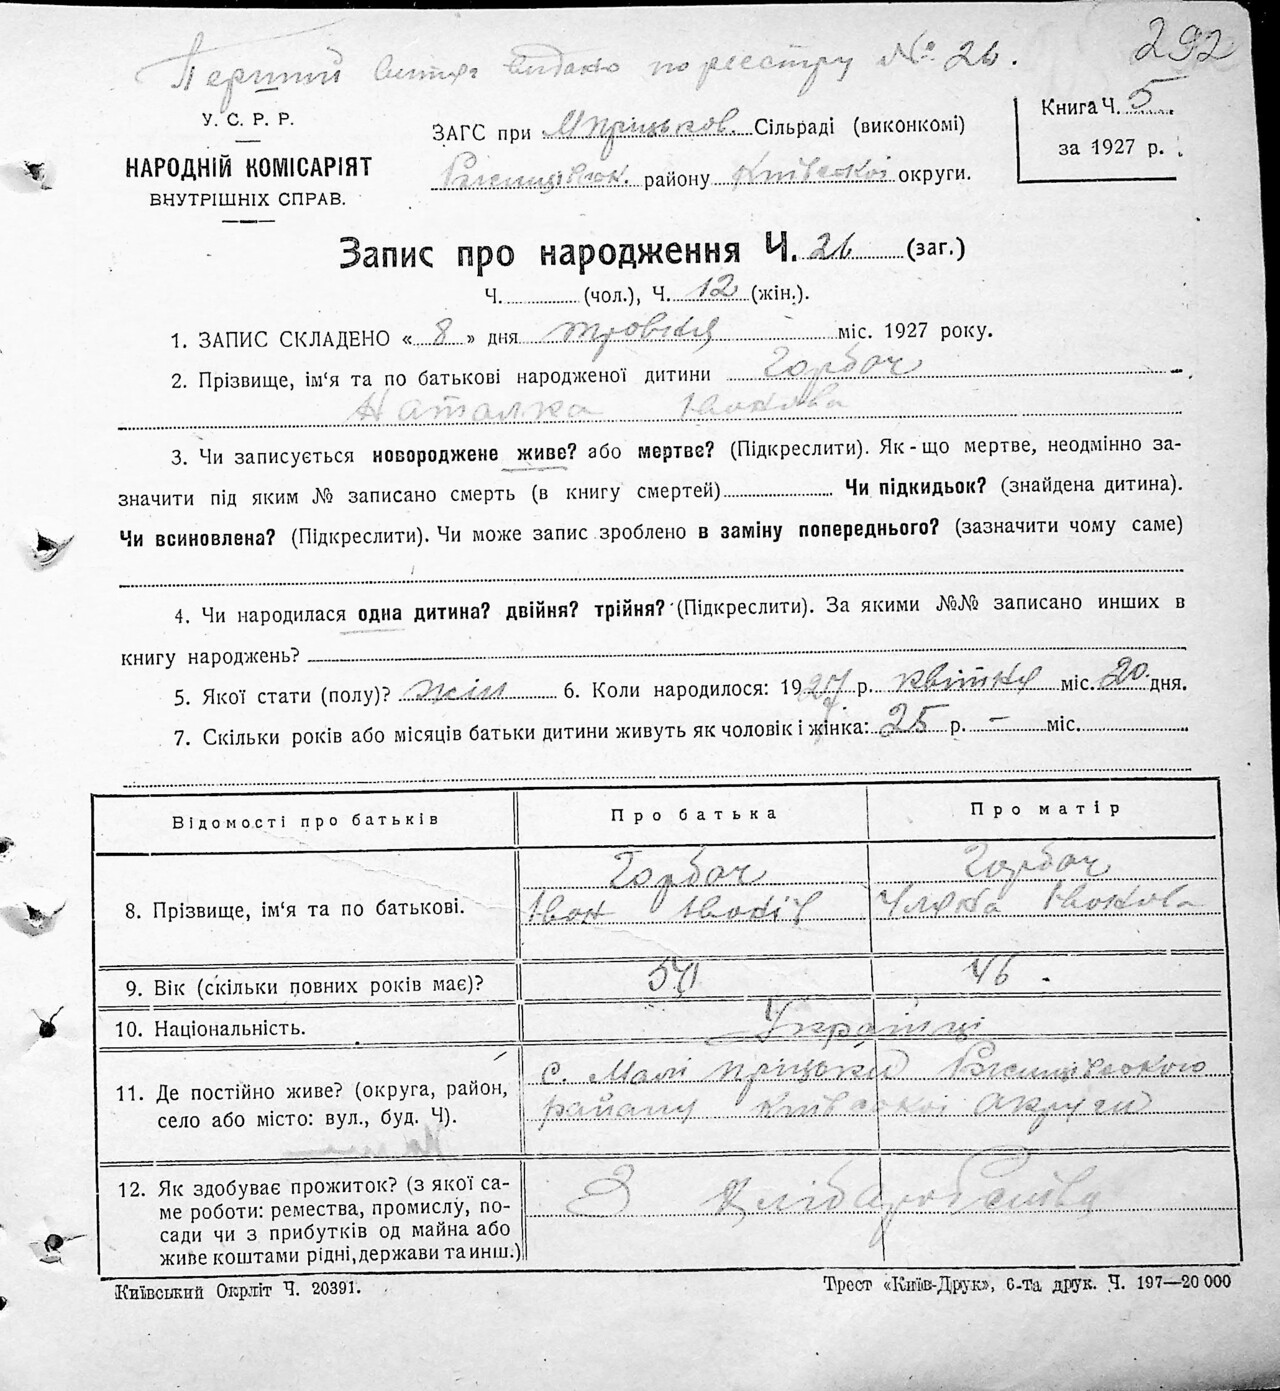 292
Перший витяг видано по реєстру № 26.
У. С. Р. Р.
НАРОДНІЙ КОМІСАРІЯТ
ВНУТРІШНІХ СПРАВ.
ЗАГС при М Пріцьков. Сільраді (виконкомі)
Ржищівськ. району Київської округи.
Книга Ч. 5
за 1927 р.
Запис про народження Ч. 26 (заг.)
Ч. (чол.), Ч. 12 (жін.).
1. ЗАПИС СКЛАДЕНО « 8 » дня травня міс. 1927 року.
2. Прізвище, ім‘я та по батькові народженої дитини Горбач
Наталка Іванова
3. Чи записується новороджене живе? або мертве? (Підкреслити). Як-що мертве, неодмінно за-
значити під яким № записано смерть (в книгу смертей) Чи підкидьок? (знайдена дитина).
Чи всиновлена? (Підкреслити). Чи може запис зроблено в заміну попереднього? (зазначити чому саме)
4. Чи народилася одна дитина? двійня? трійня? (Підкреслити). За якими №№ записано инших в
книгу народжень?
5. Якої стати (полу)? жін 6. Коли народилося: 1927 р. квітня міс. 20 дня.
7. Скільки років або місяців батьки дитини живуть як чоловік і жінка: 25 р. – міс.
Відомості про батьків
Про батька
Про матір
8. Прізвище, ім‘я та по батькові.
Горбач
Іван Іванів
Горбач
Іванова
9. Вік (скільки повних років має)?
46.
10. Національність.
Українці
11. Де постійно живе? (округа, район,
село або місто: вул., буд. Ч).
с. Малі Пріцьки Ржищівського
району Київської округи
12. Як здобуває прожиток? (з якої са-
ме роботи: ремества, промислу, по-
сади чи з прибутків од майна або
живе коштами рідні, держави та инш.)
З хліборобства
Київський Окрліт Ч. 20391.
Трест «Київ-Друк», 6-та друк. Ч. 197—20 000